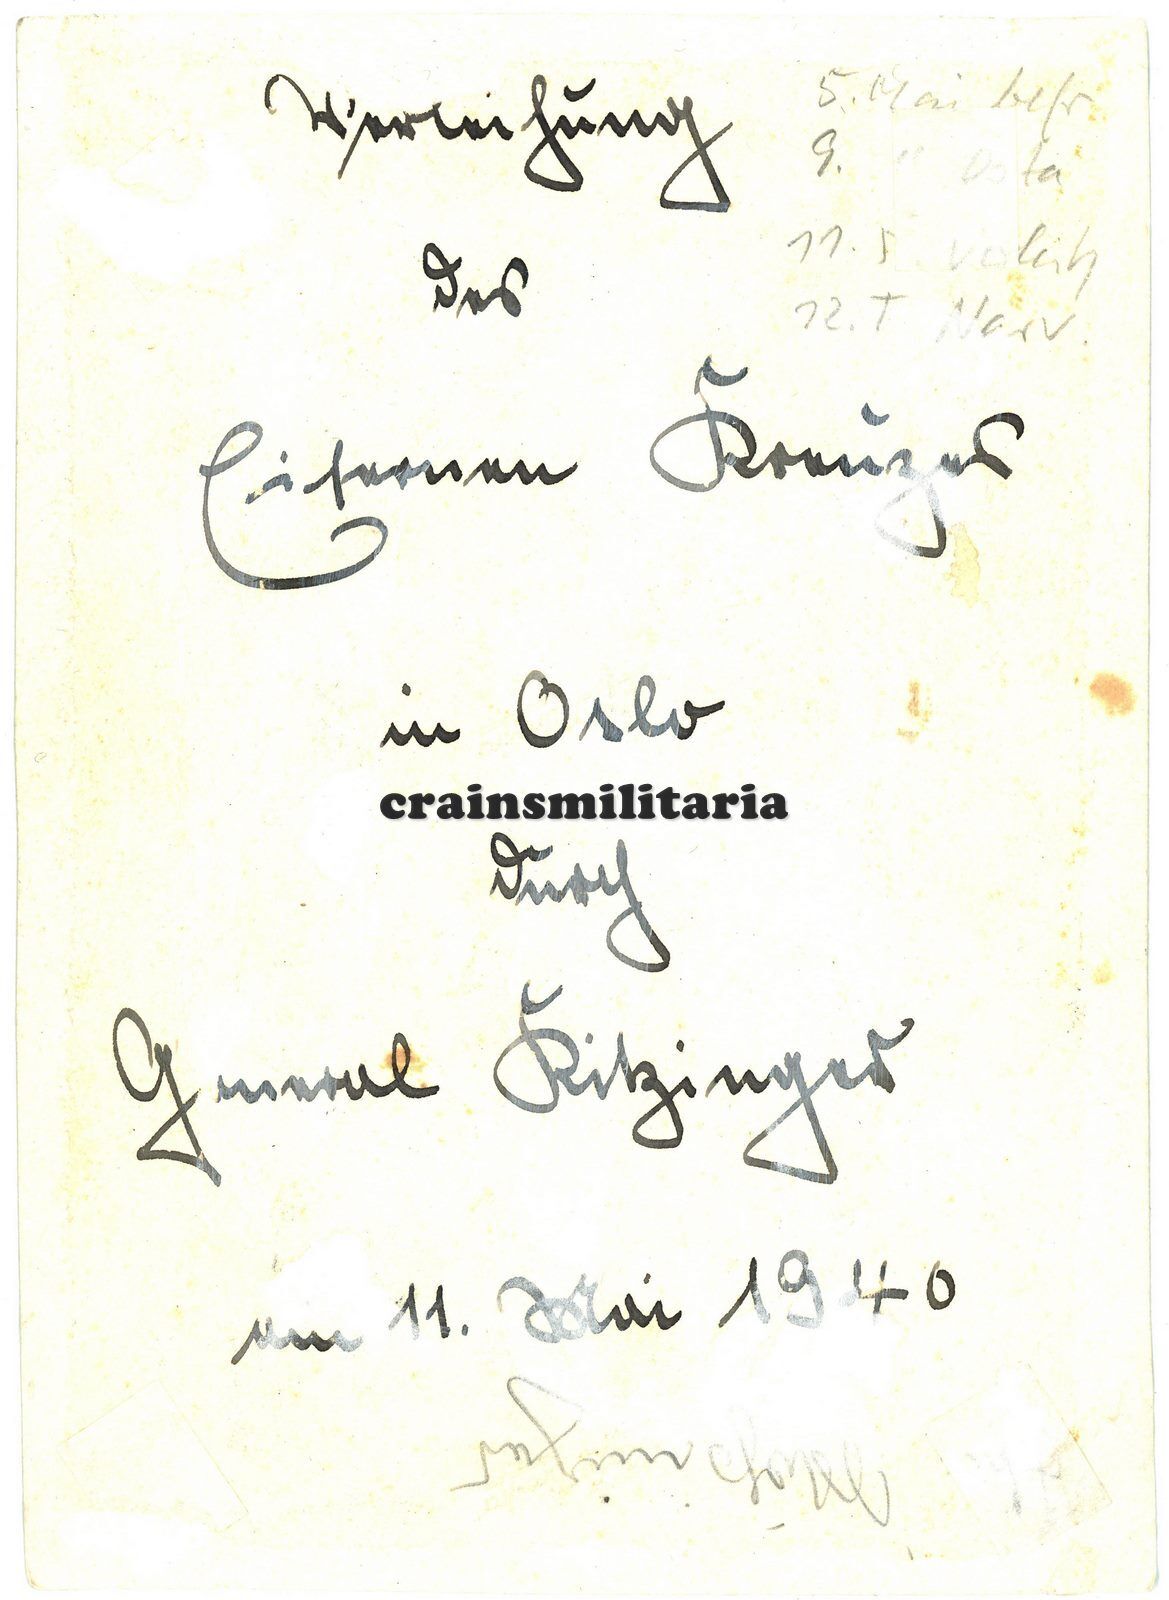 Verleihung
5. Mai befr.
9. "
11. 5.
12. T Narv.
des
Eisernen Kreuzes
in Oslo
crainsmilitaria
durch
General Kitzinger
am 11. Mai 1940